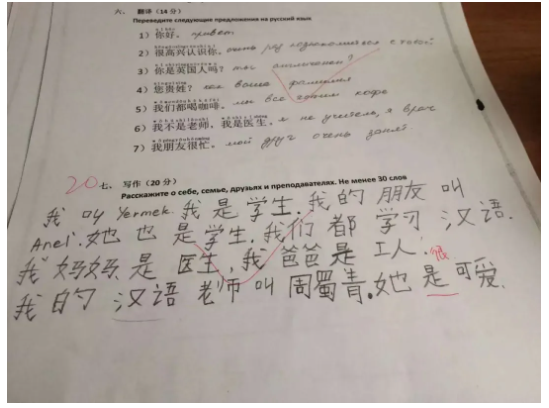 六、 翻译(14 分)
Переведите следующие предложения на русский язык
1) 你好。 привет.
2) 很高兴认识你。 очень рад познакомиться с тобой.
3) 你是英国人吗? ты англичанен?
4) 您贵姓? как ваша фамилия
5) 我们都喝咖啡。 мы все кофе
6) 我不是老师,我是医生。 я не учитель, я врач
7) 我朋友很忙。 мой друг очень занят.
20 七、 写作(20 分)
Расскажите о себе, семье, друзьях и преподавателях. Не менее 30 слов
我 叫 Yermek. 我 是 学生. 我 的 朋友 叫
Anel. 她 也 是 学生. 我们 都 学习 汉语.
我 妈妈 是 医生, 我 爸爸 是 工人.
很
我 的 汉语 老师 叫 周蜀青. 她 是 可爱.